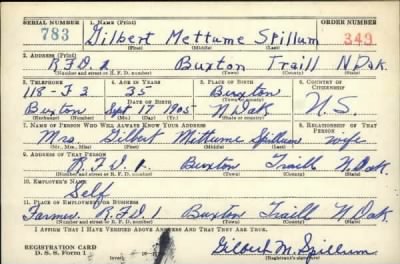 SERIAL NUMBER 1. NAME (Print) ORDER NUMBER
783 Gilbert Mettume Spillum 349
(First) (Middle) (Last)
2. ADDRESS (Print)
R.F.D. 1 Buxton Traill N Dak.
(Number and street or R. F. D. number) (Town) (County) (State)
3. TELEPHONE 4. AGE IN YEARS 5. PLACE OF BIRTH 6. COUNTRY OF CITIZENSHIP
118-F 3 35 Buxton
DATE OF BIRTH (Town or county)
Buxton Sept 1905 N Dak U.S.
(Exchange) (Number) (Mo.) (Day) (Yr.) (State or country)
7. NAME OF PERSON WHO WILL ALWAYS KNOW YOUR ADDRESS 8. RELATIONSHIP OF THAT PERSON
Mrs. Gilbert Mettume Spillum wife
(Mr., Mrs., Miss) (First) (Middle) (Last)
9. ADDRESS OF THAT PERSON
R.F.D. 1. Buxton Traill N Dak.
(Number and street or R. F. D. number) (Town) (County) (State)
10. EMPLOYER'S NAME
Self
11. PLACE OF EMPLOYMENT OR BUSINESS
Farmer R.F.D 1 Buxton Traill N Dak.
(Number and street or R. F. D. number) (Town) (County) (State)
I AFFIRM THAT I HAVE VERIFIED ABOVE ANSWERS AND THAT THEY ARE TRUE.
REGISTRATION CARD
D. S. S. Form 1 Gilbert M. Spillum
(Registrant's signature)